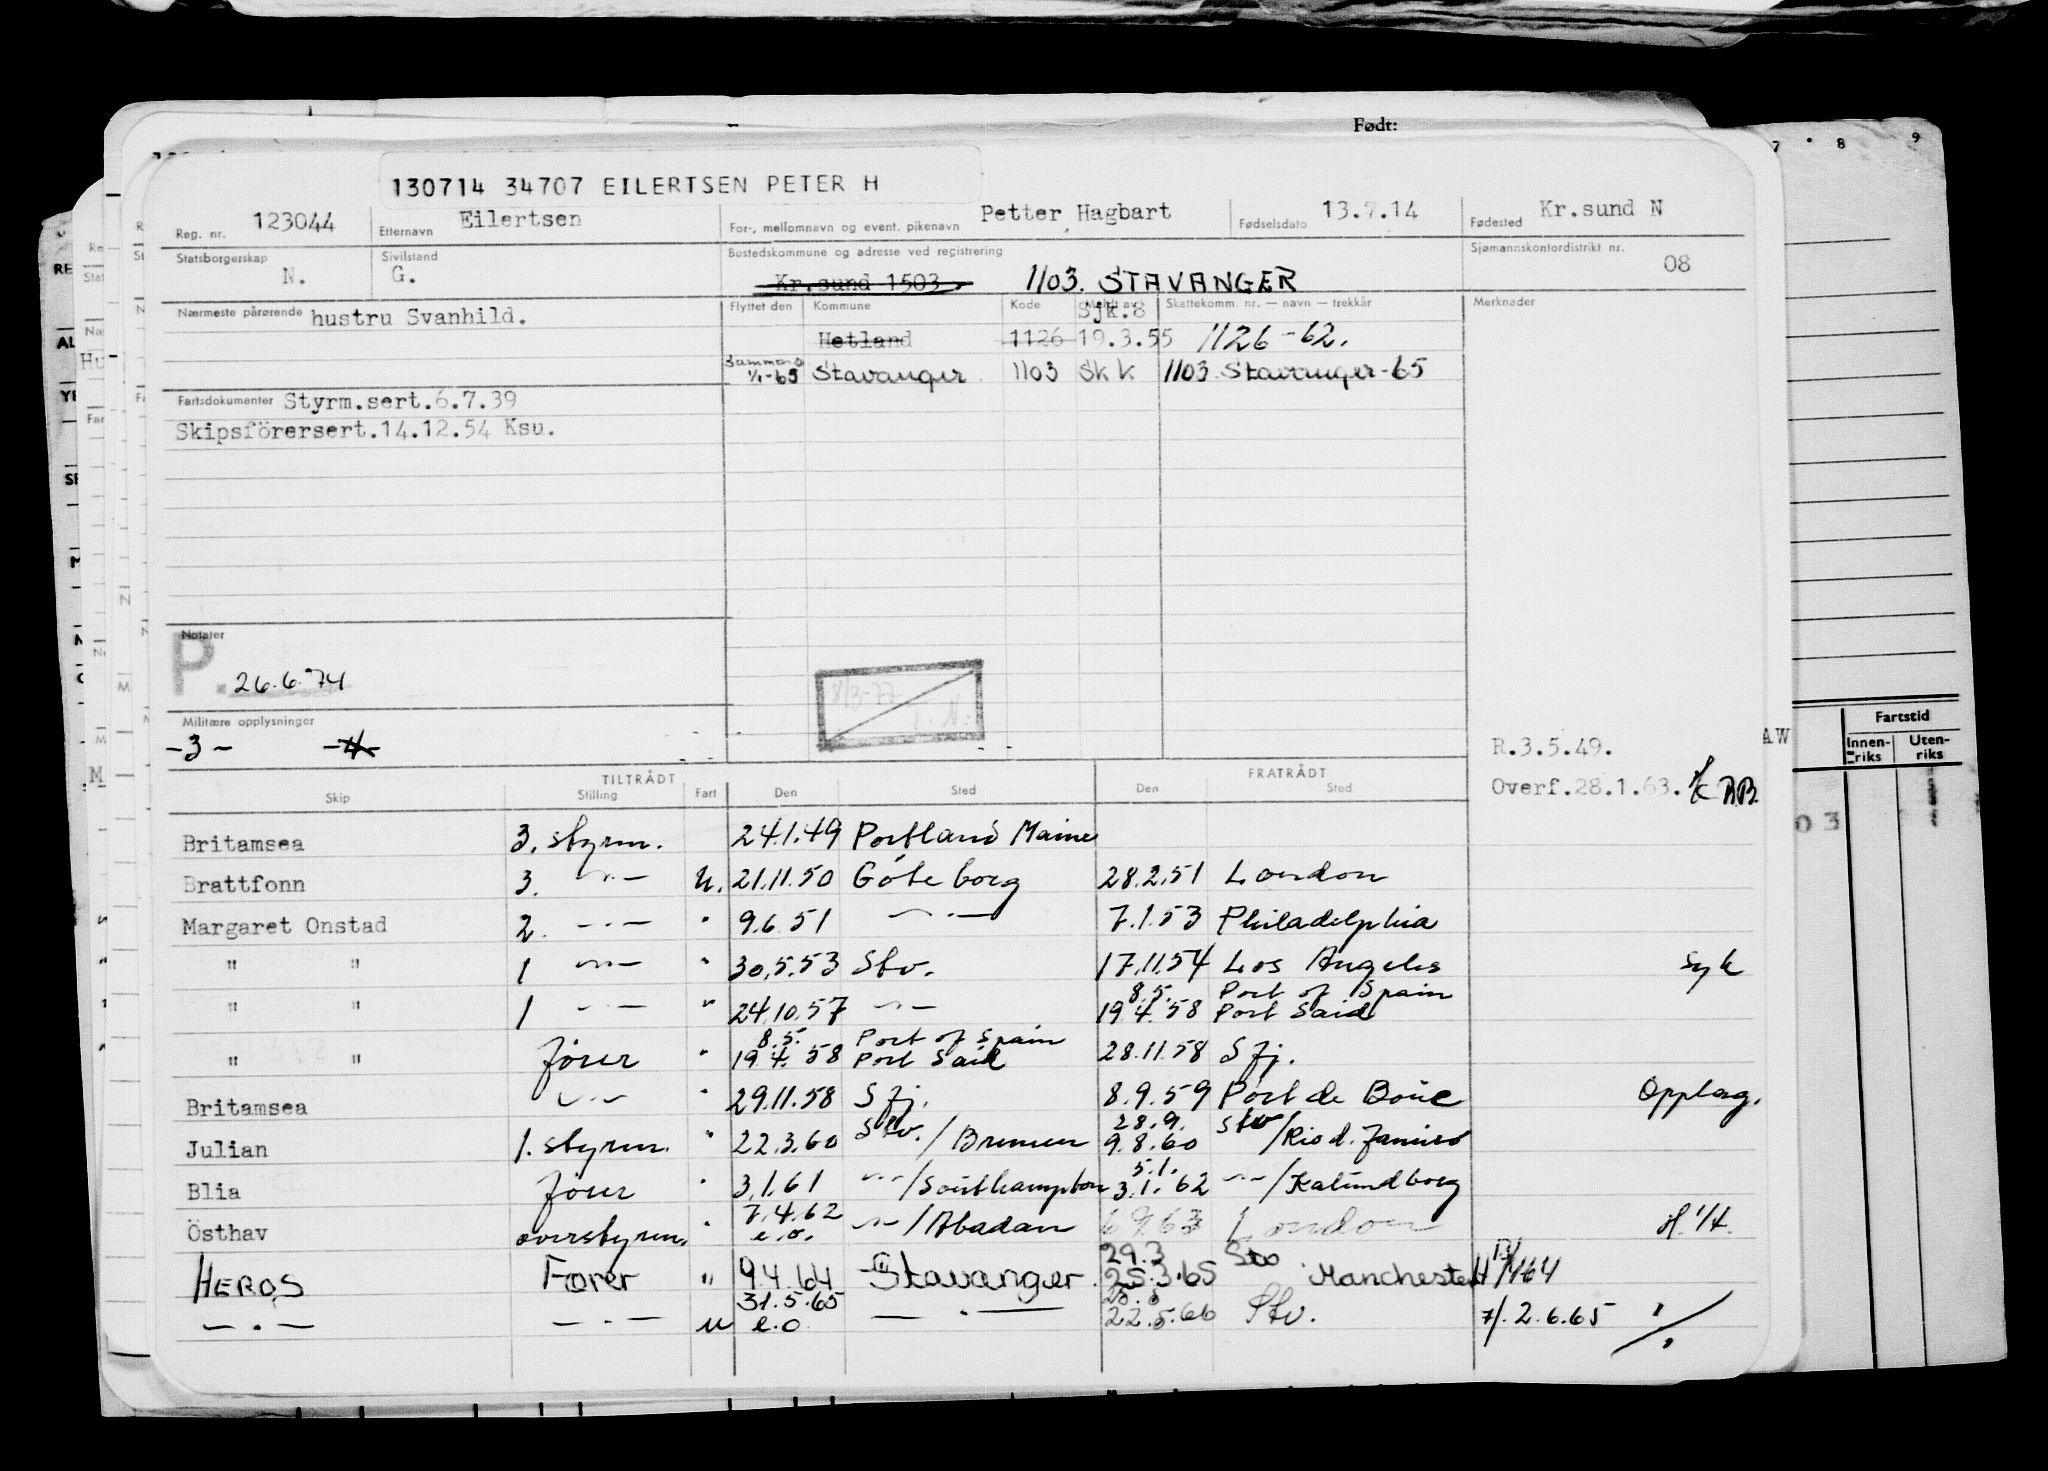 Født:
130714 34707 EILERTSEN PETER H
Reg. nr. 123044 Etternavn Eilertsen For-, mellomnavn og event. pikenavn Petter Hagbart Fødselsdato 13.7.14 Fødested Kr.sund N
Statsborgerskap N. Sivilstand G. Bostedskommune og adresse ved registrering Kr.sund 1503. 1103. STAVANGER Sjømannskontordistrikt nr. 08
Nærmeste pårørende hustru Svanhild. Flyttet den Kommune Kode Sjk.8 Skattekomm. nr. — navn — trekkår Merknader
Hetland 1126 19.3.55 1126-62.
1/1-65 Stavanger 1103 Skk 1103 Stavanger-65
Fartsdokumenter Styrm.sert.6.7.39
Skipsförersert.14.12.54 Ksu.
Notater
P. 26.6.74
8/3-77
Militære opplysninger
-3- -4-
R.3.5.49.
Overf.28.1.63. BB.
TILTRÅDT FRATRÅDT
Skip Stilling Fart Den Sted Den Sted
Britamsea 3. styrm. 24.1.49 Portland Maine
Brattfonn 3. -"- U. 21.11.50 Göteborg 28.2.51 London
Margaret Onstad 2. -"- " 9.6.51 -"- 7.1.53 Philadelphia
" " 1 -"- " 30.5.53 Stv. 17.11.54 Los Angeles syk
8.5. Port of Spain
" " 1 -"- " 24.10.57 -"- 19.4.58 Port Said
8.5. Port of Spain
" " fører " 19.4.58 Port Said 28.11.58 Sfj.
Britamsea -"- " 29.11.58 Sfj. 8.9.59 Port de Bouc Opplag.
28.9.
Julian 1. styrm. " 22.3.60 Stv./Bremen 9.8.60 Stv/Rio d. Janeiro
5.1.
Blia fører " 3.1.61 -"-/Southampton 3.1.62 -"-/Kalundborg
7.4.62
Östhav overstyrm. " e.o. -"-/Abadan 6.9.63 London
29.3 Stv
HEROS Fører " 9.4.64 Stavanger 25.3.65 Manchester
31.5.65 25.5
-"- -"- U e.o. -"- 22.5.66 Stv. 7/. 2.6.65 "
Fartstid
Innen-riks Uten-riks